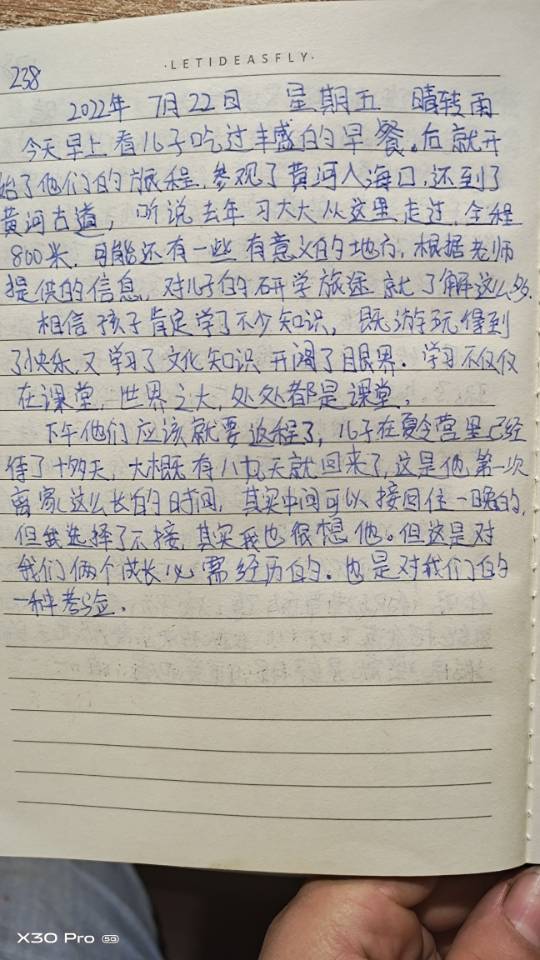 ·LETIDEASFLY·
238
2022年 7月22日 星期五 晴转雨
今天早上看儿子吃过丰盛的早餐。后就开
始了他们的旅程，参观了黄河入海口，还到了
黄河古道，听说去年习大大从这里走过，全程
800米，可能还有一些有意义的地方，根据老师
提供的信息，对儿子的研学旅途就了解这么多.
相信孩子肯定学了不少知识，既游玩得到
了快乐，又学习了文化知识开阔了眼界。学习不仅仅
在课堂，世界之大，处处都是课堂。
下午他们应该就要返程了，儿子在夏令营里已经
待了十多天，大概有八九天就回来了，这是他第一次
离家这么长的时间，其实中间可以接回住一晚的，
但我选择了不接，其实我也很想他。但这是对
我们俩个成长必需经历的。也是对我们的
一种考验.
X30 Pro 5G